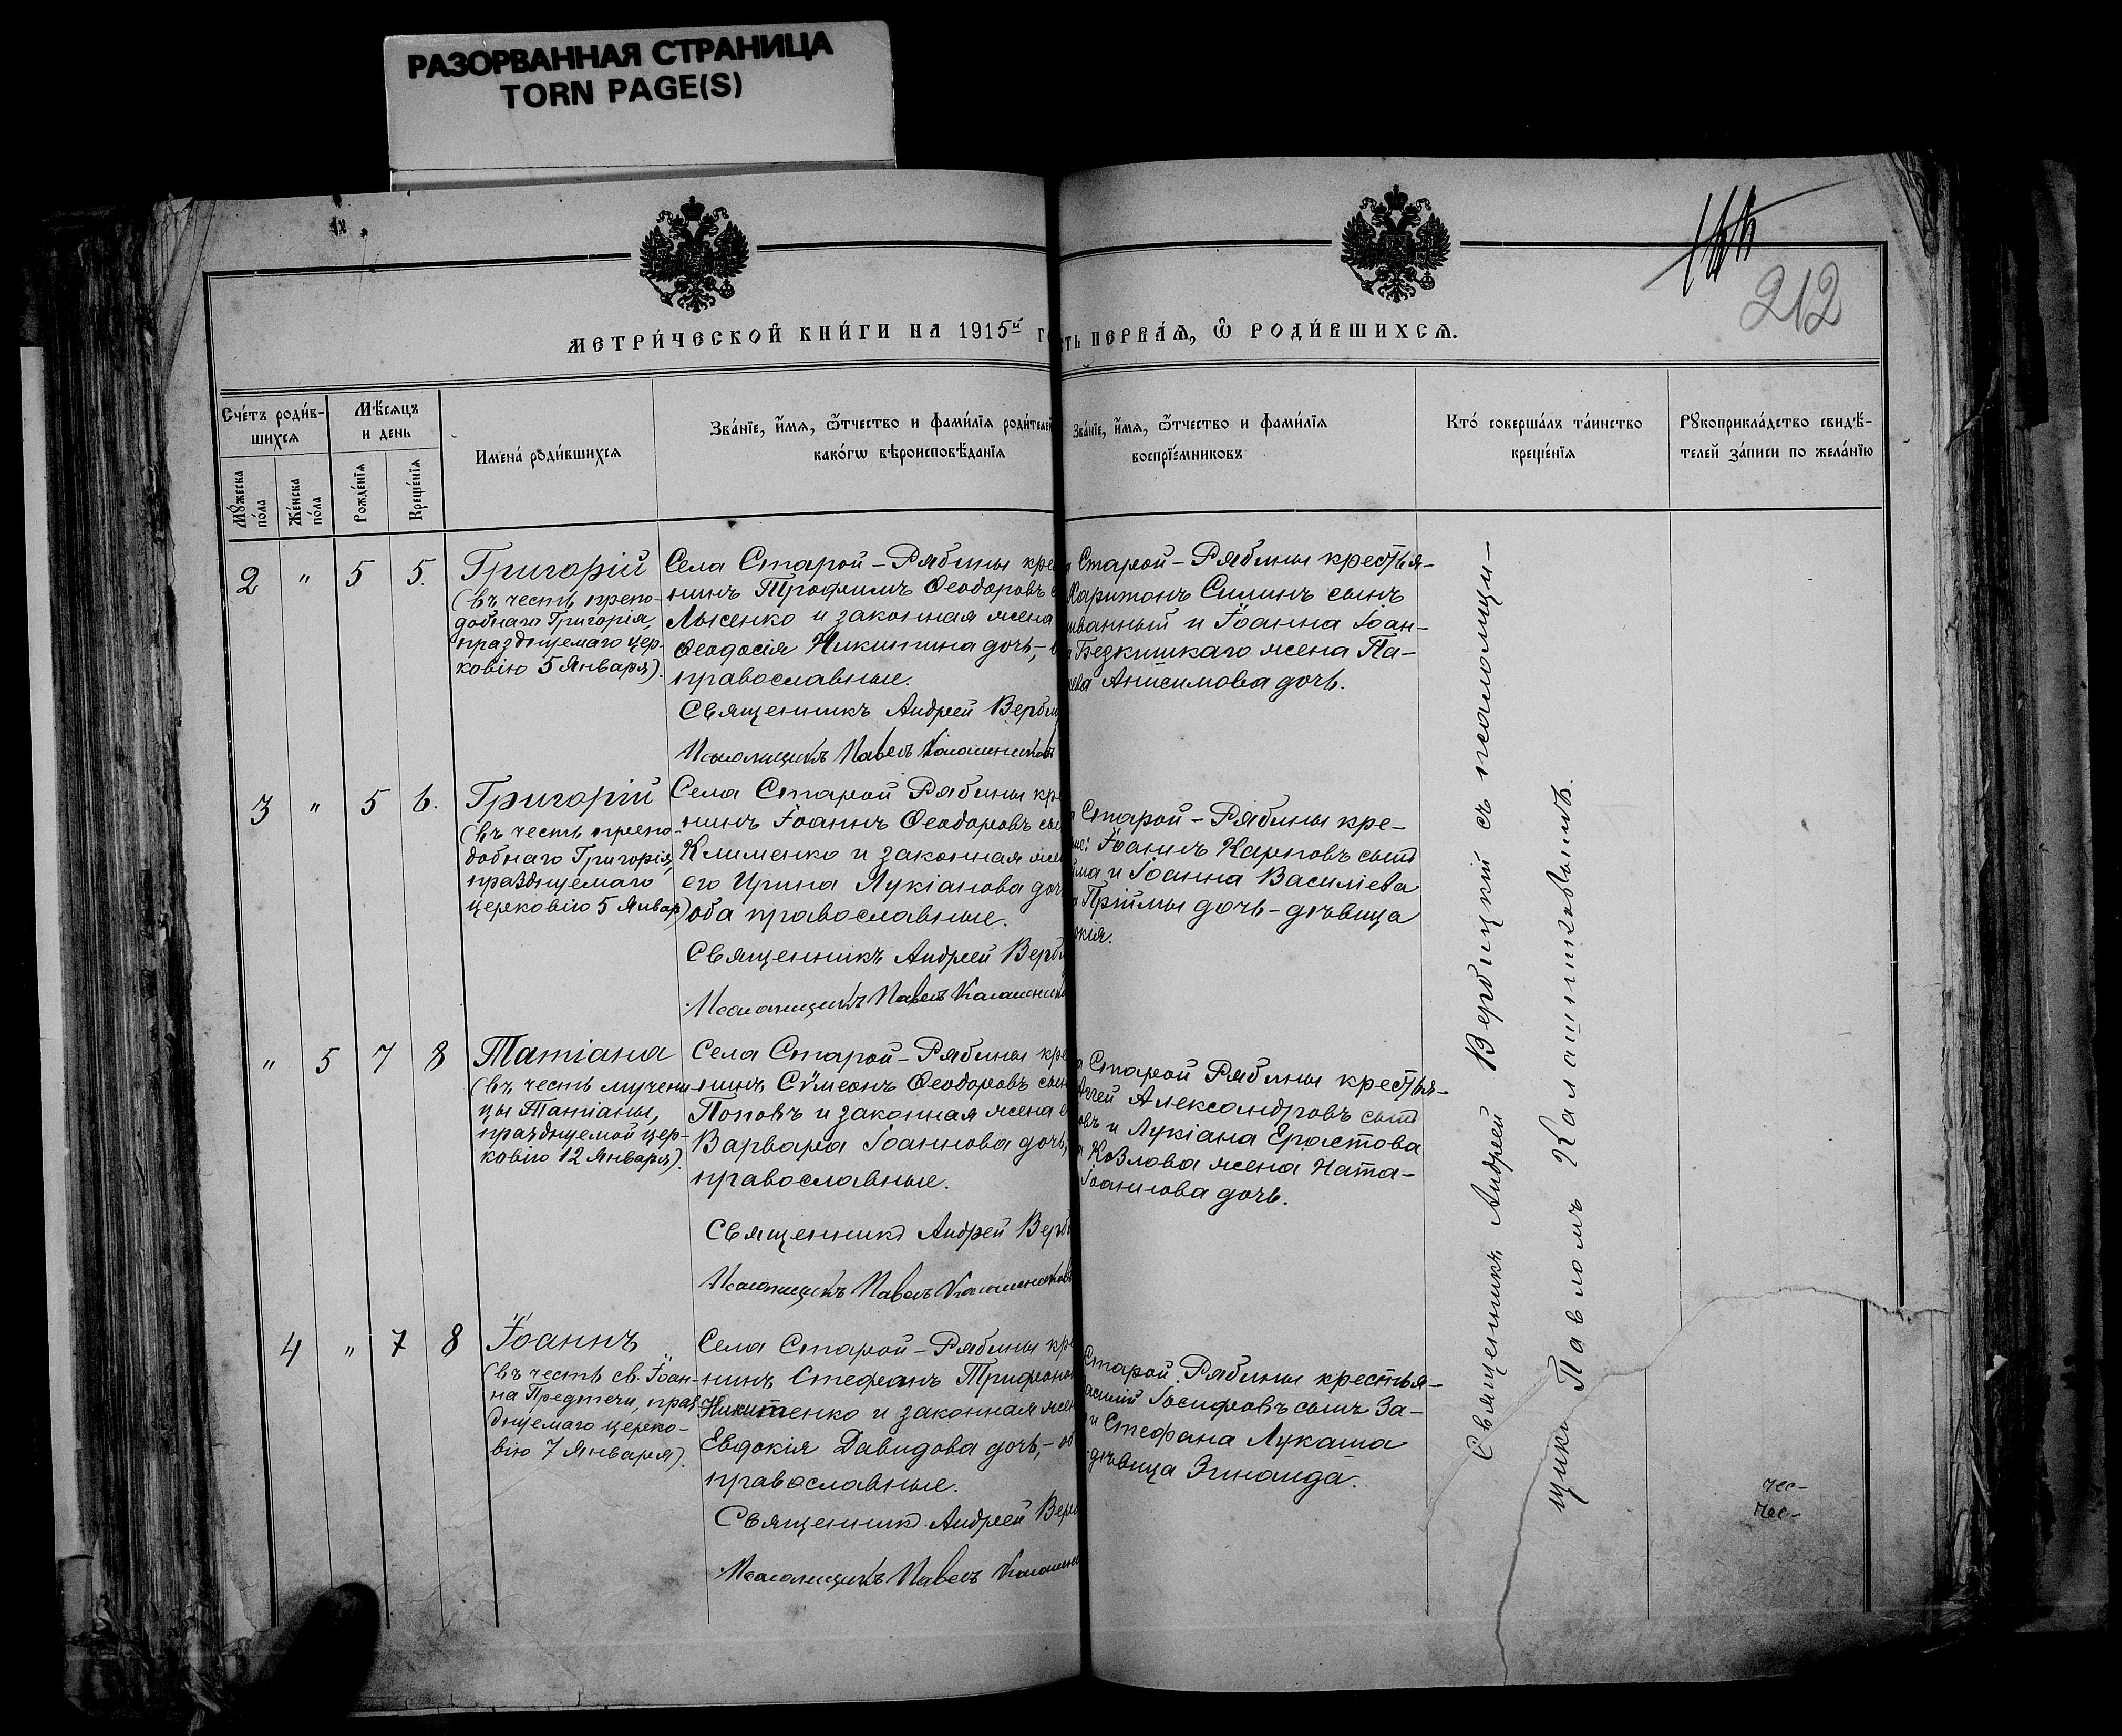 РАЗОРВАННАЯ СТРАНИЦА
TORN PAGE(S)
212
МЕТРИ́ЧЕСКОЙ КНИ́ГИ НА 1915й
ПЕРВА́Ѧ, Ѽ РОДИ́ВШИХСѦ.
Сче́тъ роди́в-
шихсѧ
Мѣ́сѧцъ
и день
Мꙋ́жеска
по́ла
Же́нска
по́ла
Рожде́нїѧ
Креще́нїѧ
Имена́ роди́вшихсѧ
Зва́нїе, и́мѧ, ѻ҆́тчество и фами́лїѧ роди́телей
како́гѡ вѣроисповѣ́данїѧ
Зва́нїе, и́мѧ, ѻ҆́тчество и фами́лїѧ
воспрїе́мниковъ
Кто́ соверша́лъ та́инство
креще́нїѧ
Рꙋкоприкла́дство свидѣ́-
телей за́писи по жела́нїю
2 " 5 5.
Григорій
(въ честь препо-
добнаго Григорія,
празднуемаго цер-
ковію 5 Января).
Села Старой-Рябины кре
нинъ Трофимъ Ѳеодоровъ с
Лысенко и законная жена
Ѳеодосія Никитина дочь,-
православные.
Священникъ Андрей Верби
Псаломщикъ Павелъ Калашниковъ
Старой-Рябины крестья-
Харитонъ Силинъ сынъ
ванный и Іоанна Іоан-
Безкишкаго жена Па-
Анисимова дочь.
3 " 5 6.
Григорій
(въ честь препо-
добнаго Григорія,
празднуемаго
церковію 5 Январ)
Села Старой Рябины кр
нинъ Іоаннъ Ѳеодоровъ сы
Клименко и законная же
его Ирина Лукіанова доч
оба православные.
Священникъ Андрей Верб
Псаломщикъ Павелъ Калашник
Старой-Рябины кре-
Іоаннъ Карповъ сынъ
ма и Іоанна Василіева
Пріймы дочь-дѣвица
окія.
" 5 7 8
Татіана
(въ честь мучени-
цы Татіаны,
празднуемой цер-
ковію 12 Января).
Села Старой-Рябины кре
нинъ Сѵмеонъ Ѳеодоровъ сын
Поповъ и законная жена е
Варвара Іоаннова дочь,
православные.
Священникъ Андрей Верб
Псаломщикъ Павелъ Калашников
Старой Рябины крестья-
Александровъ сынъ
овъ и Лукіана Ерастова
Козлова жена Ната-
Іоаннова дочь.
4 " 7 8
Іоаннъ
(въ честь св. Іоан-
на Предтечи, праз
днуемаго церко-
вію 7 Января).
Села Старой-Рябины кре
нинъ Стефанъ Трифоно
Никитенко и законная жен
Евдокія Давидова дочь,- об
православные.
Священникъ Андрей Верб
Псаломщикъ Павелъ Калашни
Старой Рябины крестья-
асилій Іосифовъ сынъ За-
и Стефана Лукаша
дѣвица Зинаида.
Священникъ Андрей Вербицкій съ псаломщи-
Павломъ Калашниковымъ.